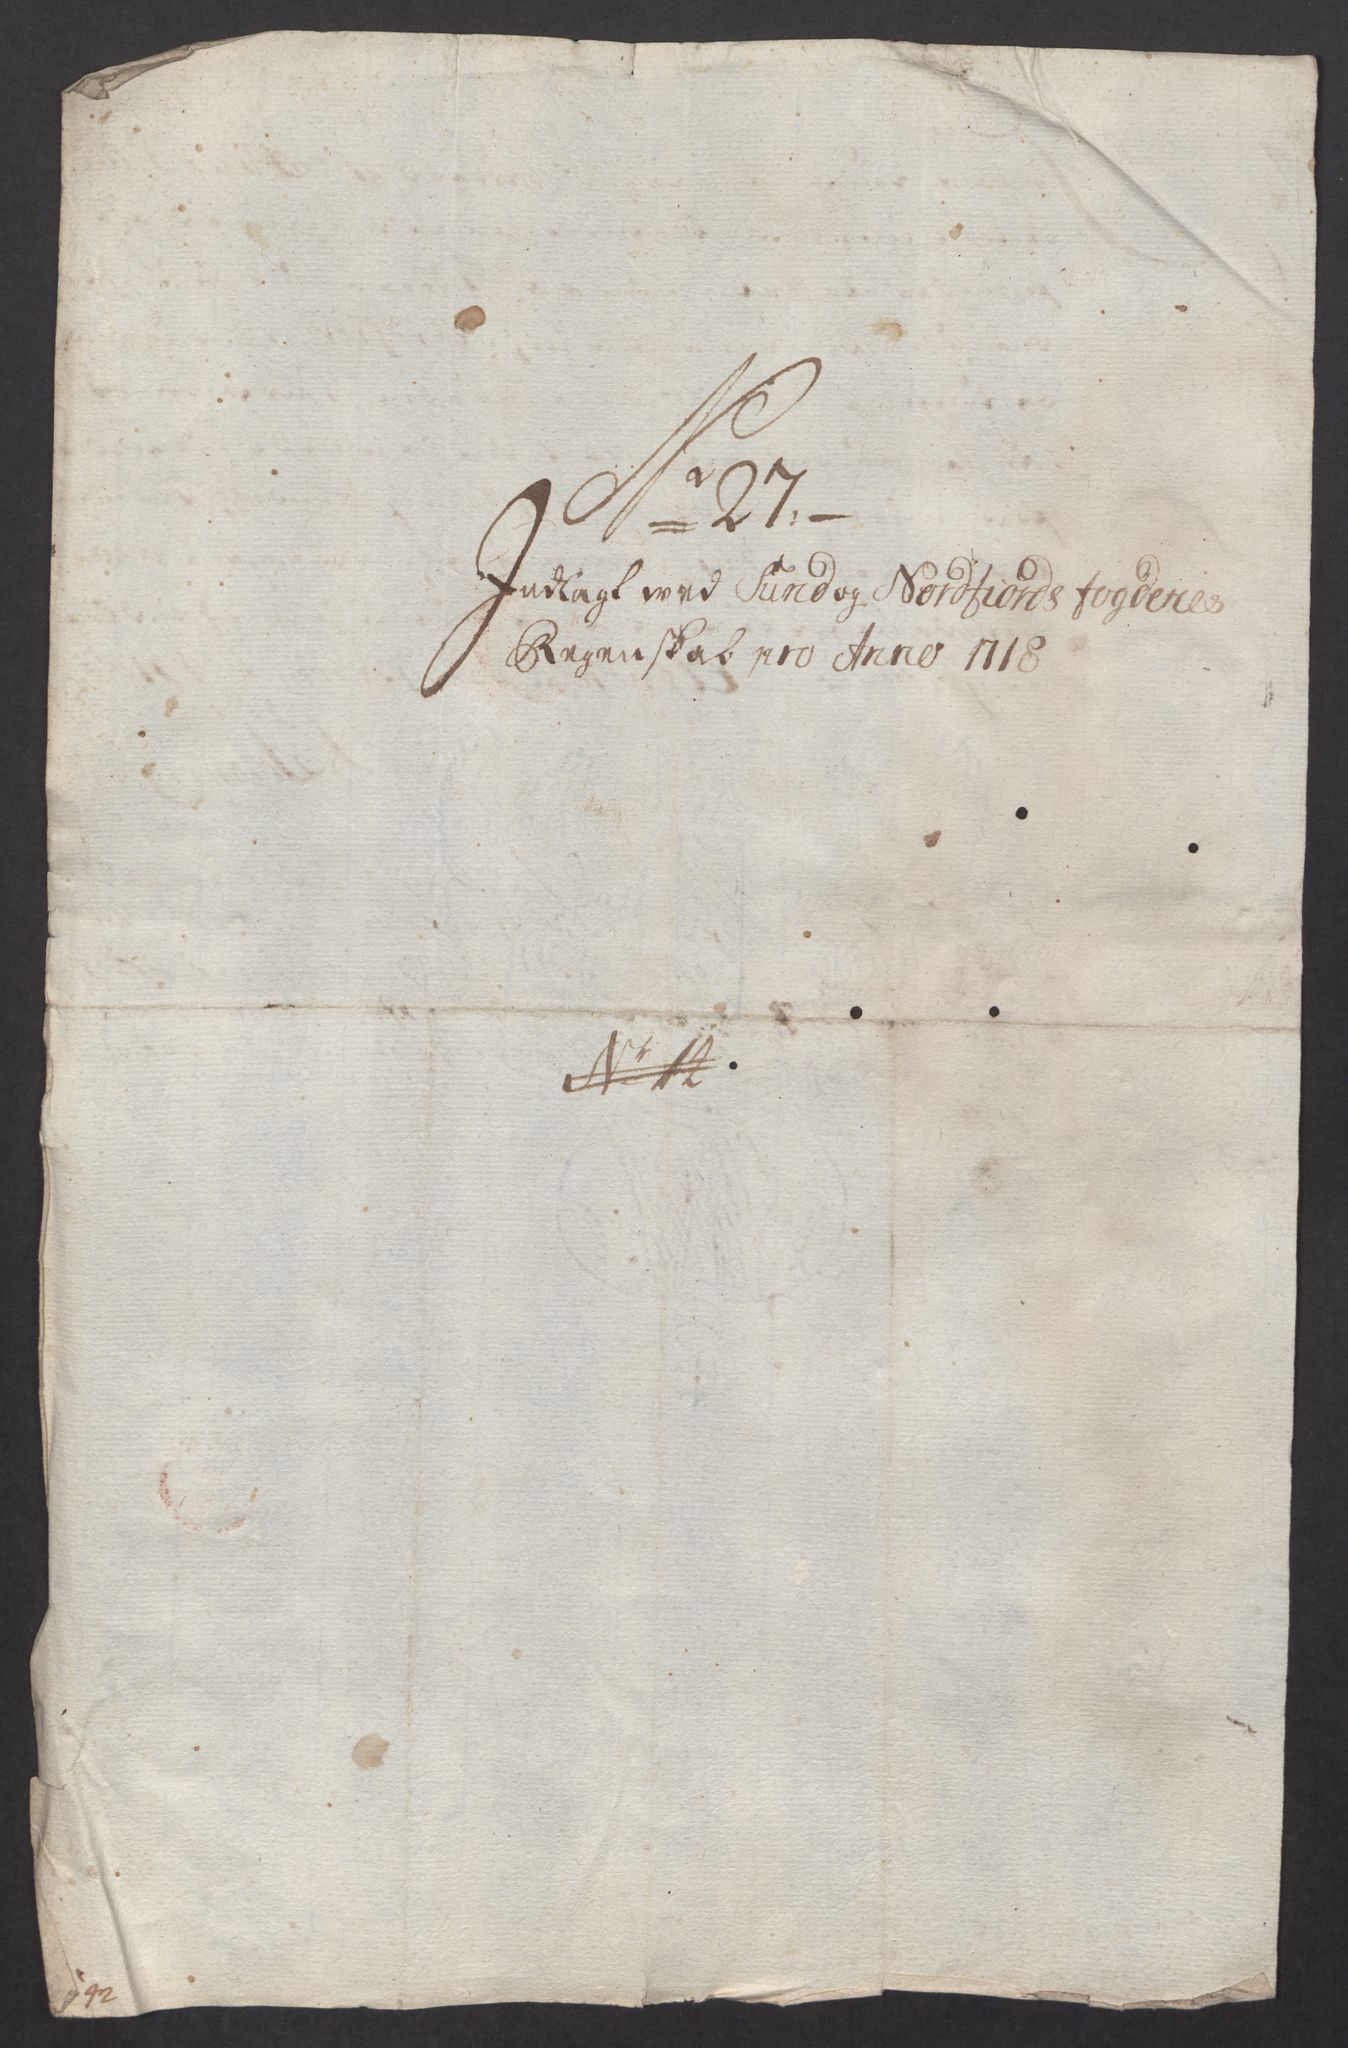 No 27.
Indlagt wed Sundog Nordfiords fogderies
Regenskab pro Anno 1718
Nr 12.